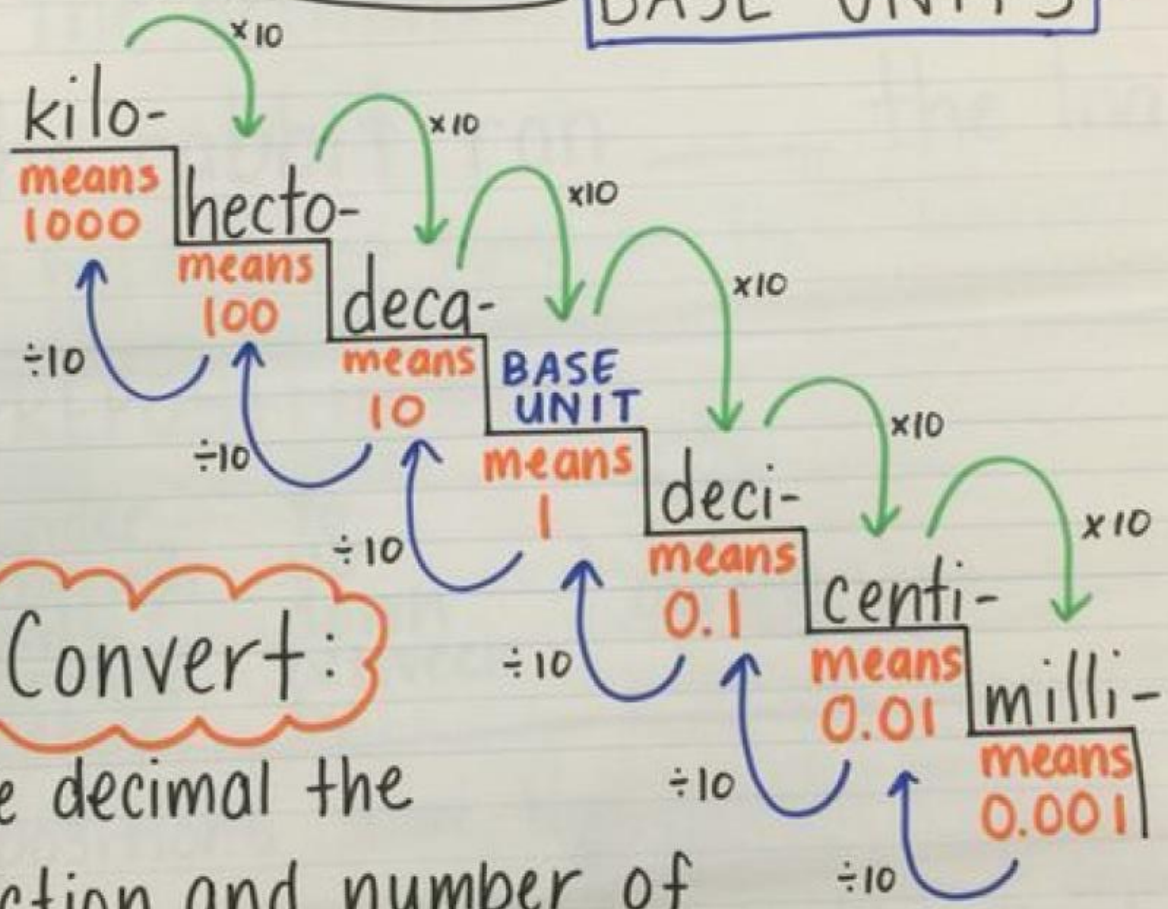 BASE UNITS
×10
kilo-
means
1000
×10
hecto-
means
100
×10
deca-
means
10
×10
BASE
UNIT
means
1
×10
deci-
means
0.1
×10
centi-
means
0.01
milli-
means
0.001
÷10
÷10
÷10
÷10
÷10
÷10
Convert:
e decimal the
ction and number of